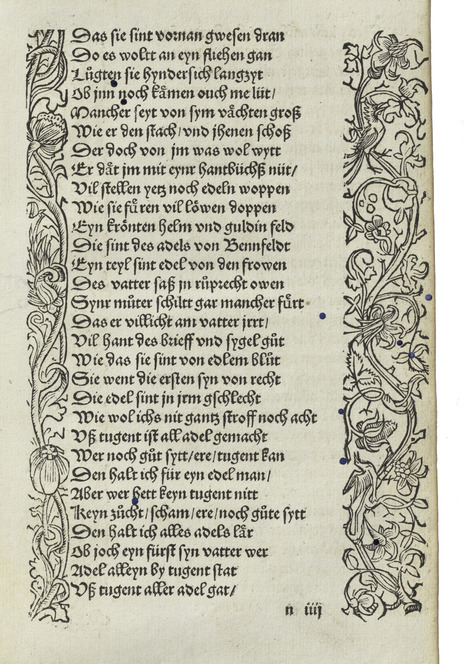 Das sie sint vornan gwesen dran
Do es wolt an eyn fliehen gan
Lůgten sie hyndersich langzyt
Ob jnn noch kämen ouch me lüt/
Mancher seyt von sym vächten groß
Wie er den stach/vnd jhenen schoß
Der doch von jm was wol wytt
Er dät jm mit eynr hantbüchß nüt/
Vil stellen yetz noch edeln woppen
Wie sie fůren vil löwen doppen
Eyn krönten helm vnd guldin feld
Die sint des adels von Bennfeldt
Eyn teyl sint edel von den frowen
Des vatter saß jn růprecht owen
Synr můter schiltt gar mancher fůrt
Das er villicht am vatter jrrt/
Vil hant des brieff vnd sygel gůt
Wie das sie sint von edlem blůt
Sie went die ersten syn von recht
Die edel sint jn jrm gschlecht
Wie wol ichs nit gantz stroff noch acht
Vß tugent ist all adel gemacht
Wer noch gůt sytt/ere/tugent kan
Den halt ich für eyn edel man/
Aber wer hett keyn tugent nitt
Keyn zůcht/scham/ere/noch gůte sytt
Den halt ich alles adels lär
Ob joch eyn fürst syn vatter wer
Adel alleyn by tugent stat
Vß tugent aller adel gat/
n iiij